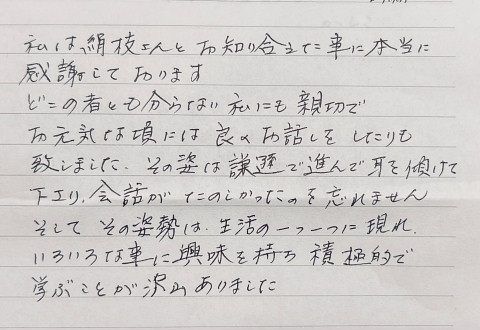 私は絹枝さんとお知り合えた事に本当に
感謝しております
どこの者とも分らない私にも親切で
お元気な頃には良くお話しをしたりも
致しました、その姿は謙遜で進んで耳を傾けて
下より、会話がたのしかったのを忘れません
そしてその姿勢は、生活の一つ一つに現れ、
いろいろな事に興味を持ち積極的で
学ぶことが沢山ありました